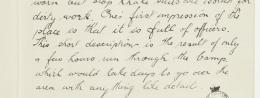 worn but slop khaki suits are worn for
dirty work. One's first impression of the
place is that it is full of officers.
This short description is the result of only
a few hours run through the Camp
which would take days to go over the
area with anything like detail.